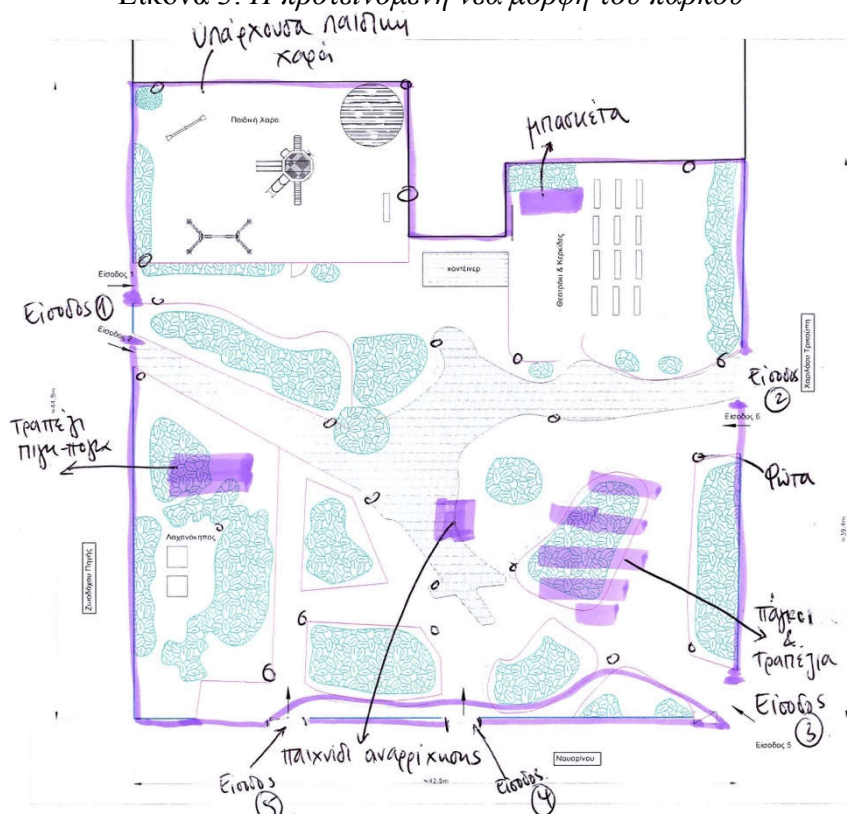 Εικόνα 3: Η προτεινόμενη νέα μορφή του πάρκου
υπάρχουσα παιδική
χαρά
Παιδική Χαρά
μπασκέτα
κοντέινερ
Θεατράκι & Κερκίδες
Είσοδος 1
Είσοδος ①
Είσοδος 2
Χαριλάου Τρικούπη
Είσοδος
②
Είσοδος 6
≈44.8m
τραπέζι
πιγκ-πογκ
Φώτα
Λαχανόκηπος
Ζωοδόχου Πηγής
≈39.4m
πάγκοι
&
τραπέζια
Είσοδος
③
Είσοδος 5
παιχνίδι αναρρίχησης
Ναυαρίνου
Είσοδος
⑤
≈42.5m
Είσοδος
④